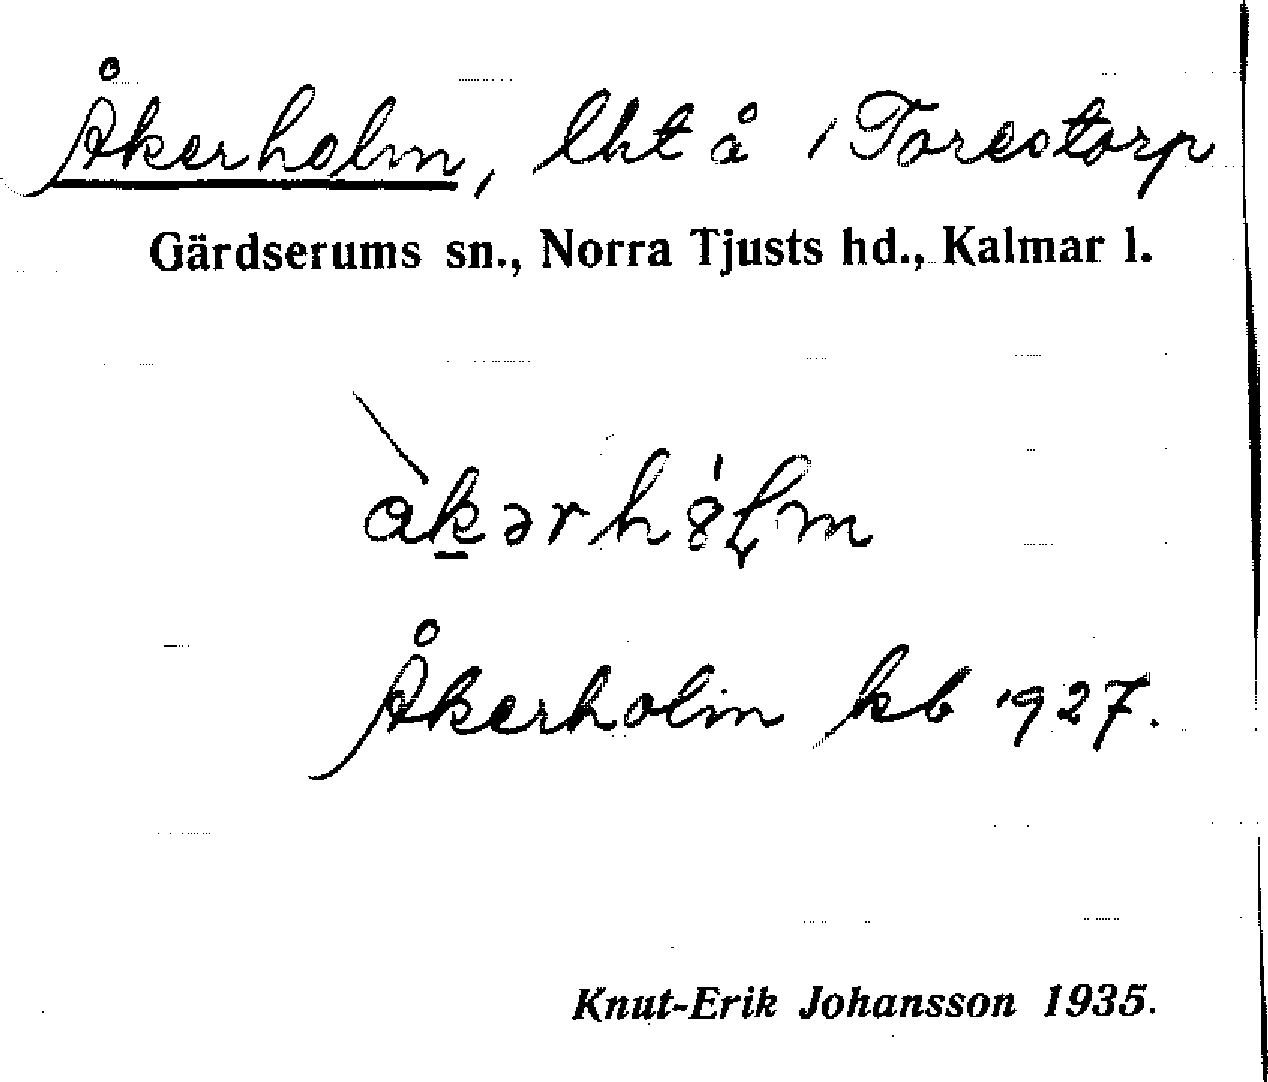 Åkerholm, lht å 1 Torestorp
Gärdserums sn., Norra Tjusts hd., Kalmar l.
Åkerholm kb 1927.
Knut-Erik Johansson 1935.